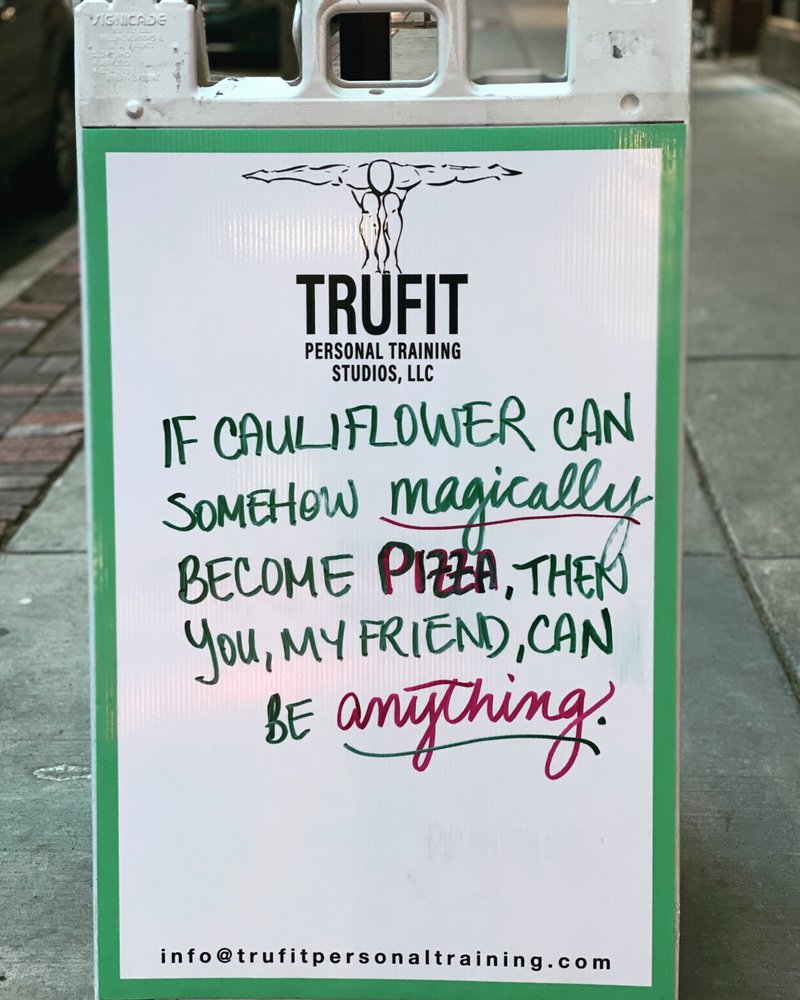 SIGNICADE
TRUFIT
PERSONAL TRAINING
STUDIOS, LLC
IF CAULIFLOWER CAN
SOMEHOW magically
BECOME PIZZA, THEN
YOU, MY FRIEND, CAN
BE anything.
info@trufitpersonaltraining.com